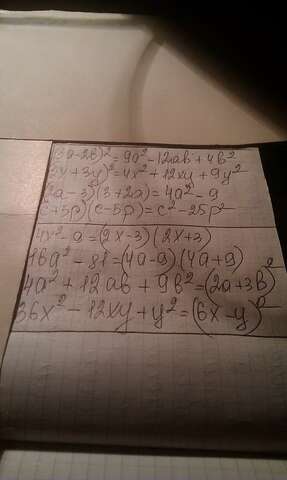 (3a-2b)² = 9a² - 12ab + 4b²
(2x + 3y)² = 4x² + 12xy + 9y²
(2a - 3)(3 + 2a) = 4a² - 9
(c + 5p)(c - 5p) = c² - 25p²
4x² - 9 = (2x - 3)(2x + 3)
16a² - 81 = (4a - 9)(4a + 9)
4a² + 12ab + 9b² = (2a + 3b)²
36x² - 12xy + y² = (6x - y)²